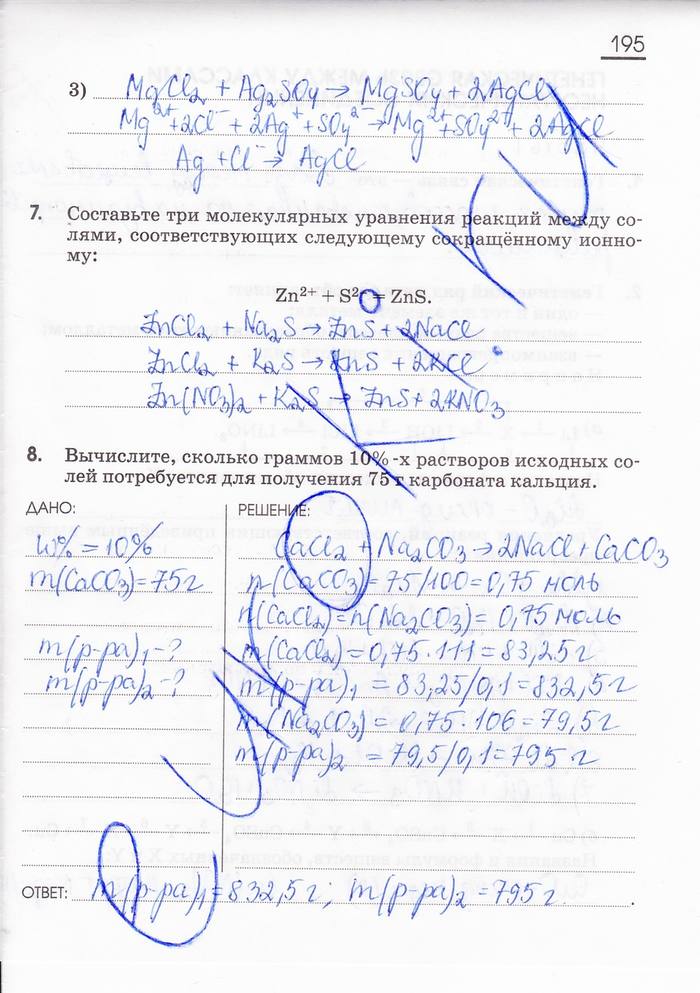 195
3) MgCl₂ + Ag₂SO₄ → MgSO₄ + 2AgCl
Mg²⁺+2Cl⁻ + 2Ag⁺+SO₄²⁻→Mg²⁺+SO₄²⁺ + 2AgCl
Ag +Cl⁻→ AgCl
7. Составьте три молекулярных уравнения реакций между со-
лями, соответствующих следующему сокращённому ионно-
му:
Zn²⁺ + S²⁻ = ZnS.
ZnCl₂ + Na₂S → ZnS + 2NaCl
ZnCl₂ + K₂S → ZnS + 2KCl
Zn(NO₃)₂ + K₂S → ZnS + 2KNO₃
8. Вычислите, сколько граммов 10%-х растворов исходных со-
лей потребуется для получения 75 г карбоната кальция.
ДАНО:
W% = 10%
m(CaCO₃)=75г
m(р-ра)₁-?
m(р-ра)₂-?
РЕШЕНИЕ:
CaCl₂ + Na₂CO₃→2NaCl+CaCO₃
n(CaCO₃)=75/100=0,75 моль
n(CaCl₂)=n(Na₂CO₃)= 0,75 моль
m(CaCl₂)=0,75·111=83,25г
m(р-ра)₁ = 83,25/0,1=832,5г
m(Na₂CO₃)=0,75·106=79,5г
m(р-ра)₂ =79,5/0,1=795г
ОТВЕТ: m(р-ра)₁=832,5г; m(р-ра)₂=795г.